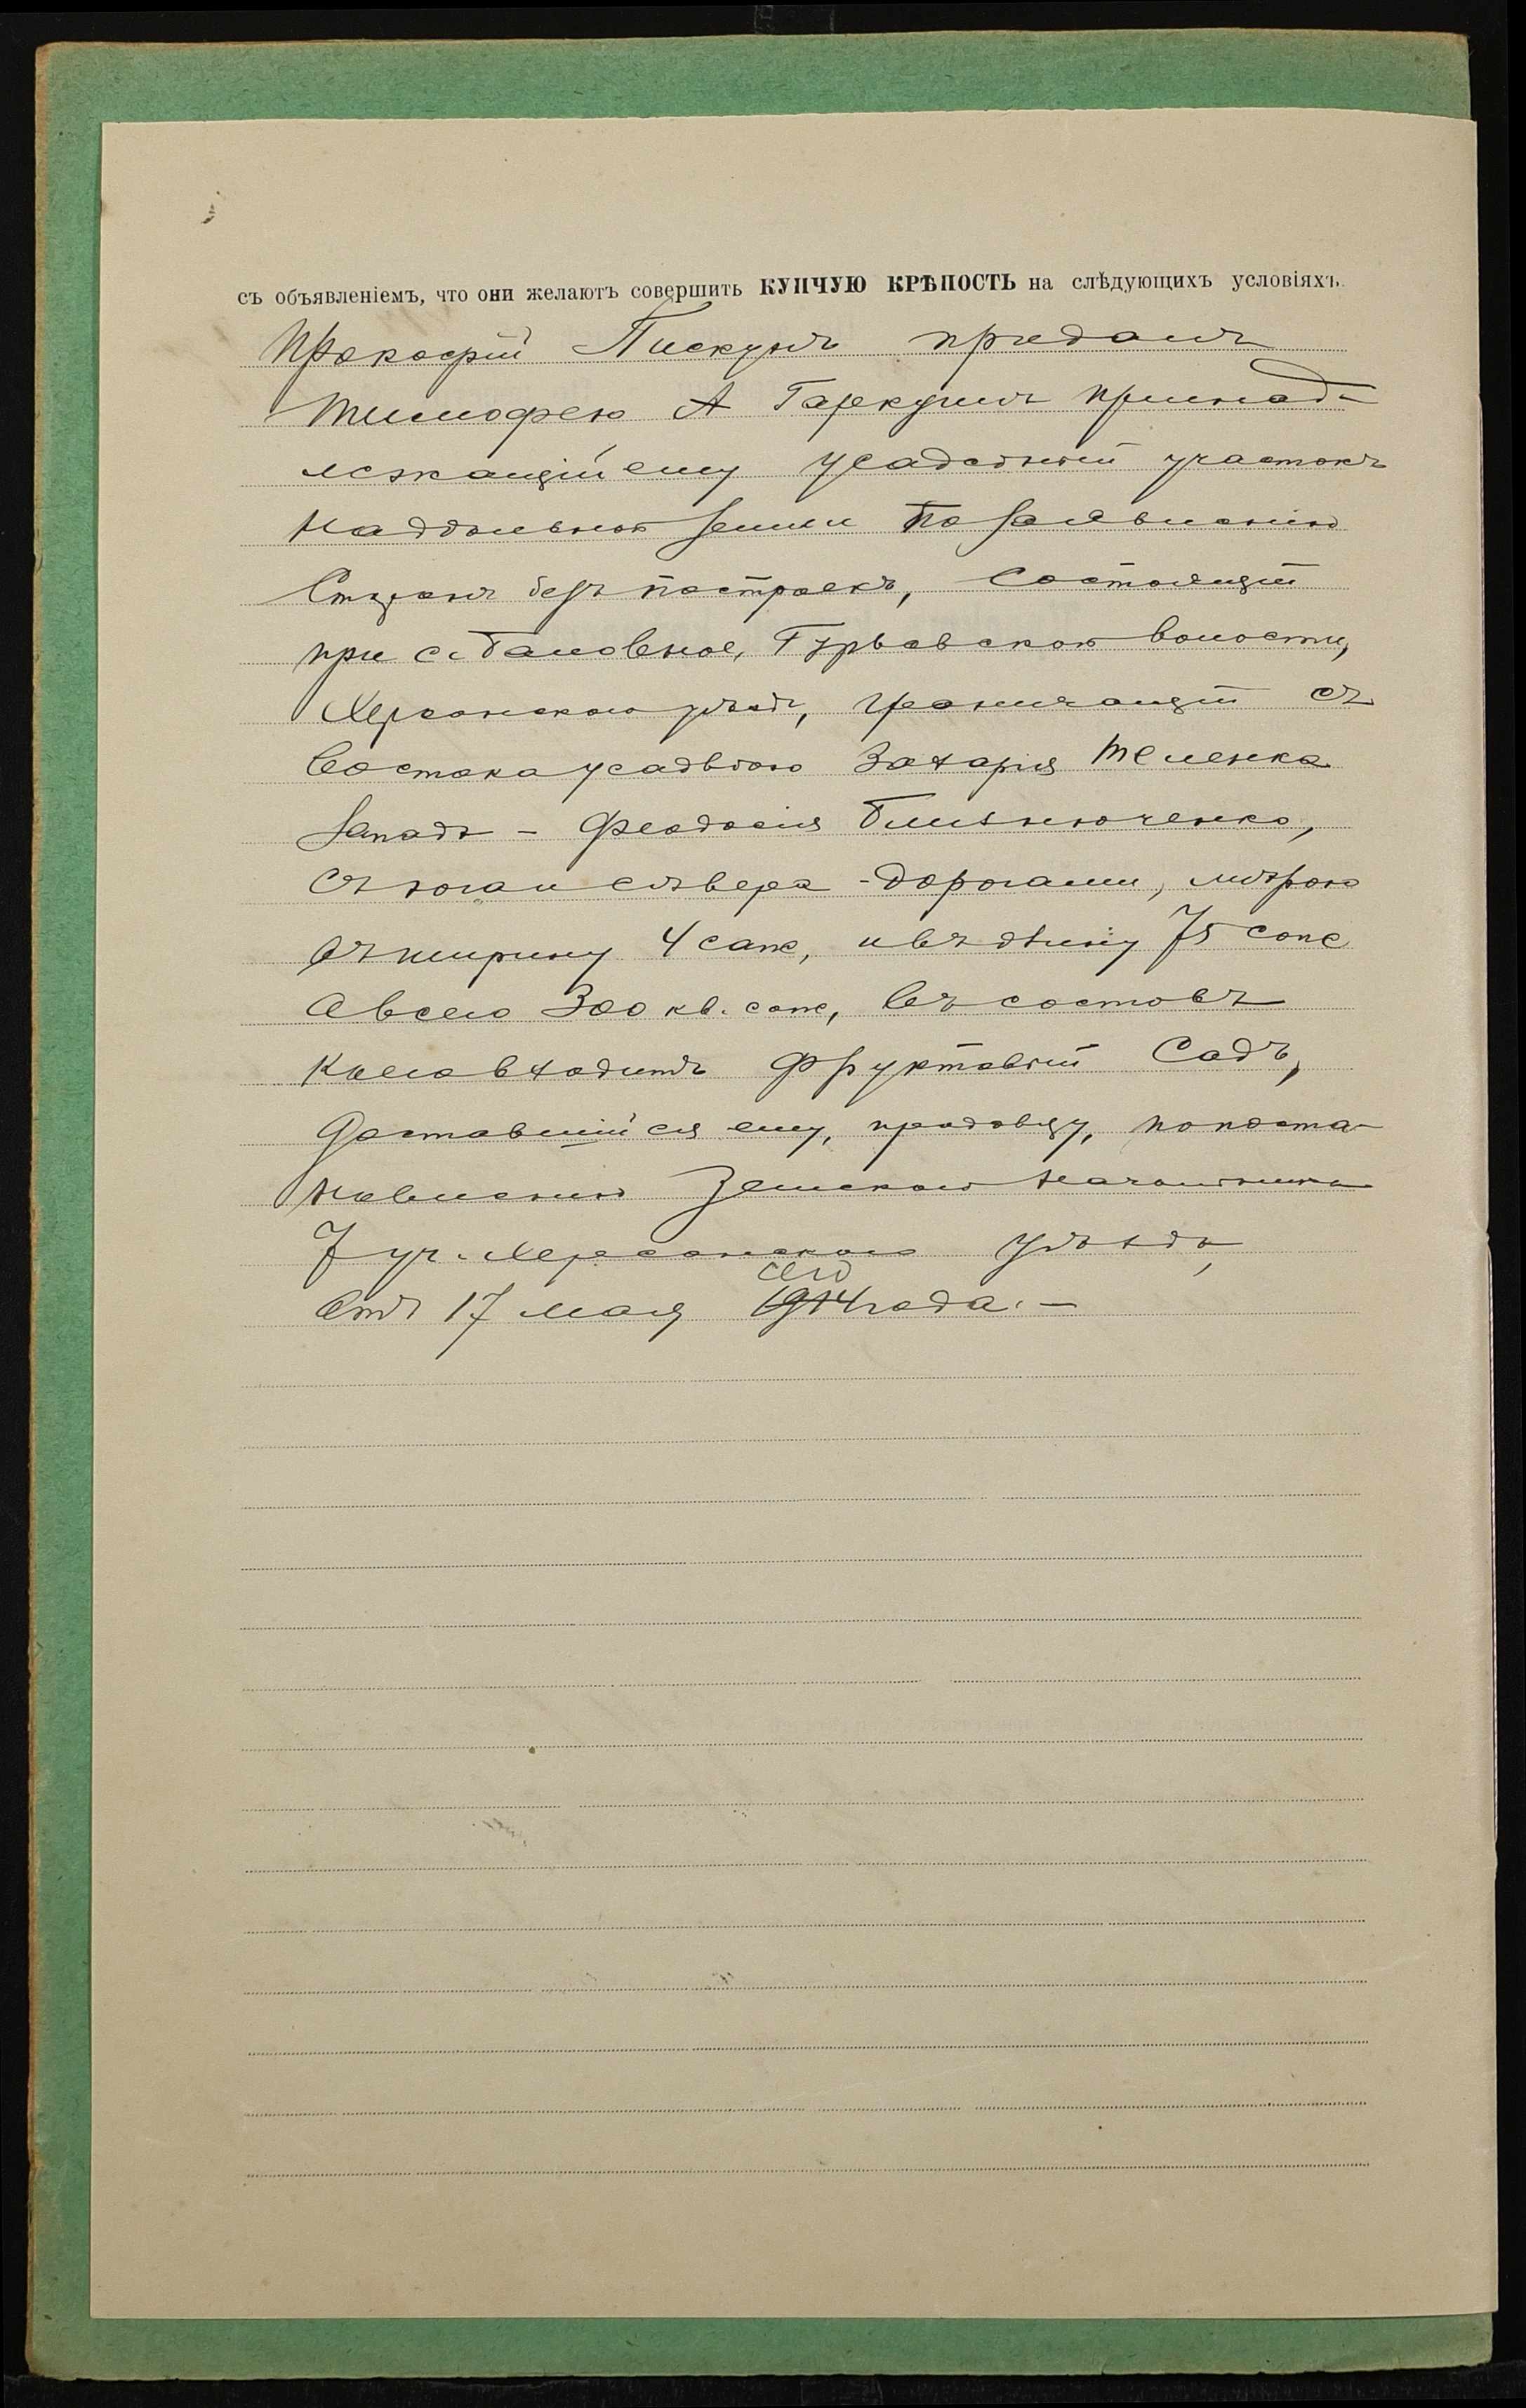 съ объявленіемъ, что они желаютъ совершить КУПЧУЮ КРѢПОСТЬ на слѣдующихъ условіяхъ.
Прокофій Пискунъ продалъ
Тимофею А Гаркуши принад-
лежащій ему усадебный участокъ
надѣльной земли по заявленію
Сторонъ безъ построекъ, состоящій
при с. Баловное, Гурьевской волости,
Херсонскаго уѣзда, граничащій съ
Востока усадьбою Захарія
Запада – Феодосія
Съ юга и сѣвера - дорогами, мѣрою
въ ширину 4 саж, и въ длину 75 саж
а всего 300 кв. саж, въ составъ
коего входитъ фруктовый Садъ,
доставшійся ему, продавцу, по поста-
новленію Земскаго Начальника
7 уч. Херсонскаго уѣзда,
сего
Отъ 17 мая 1914 года. –